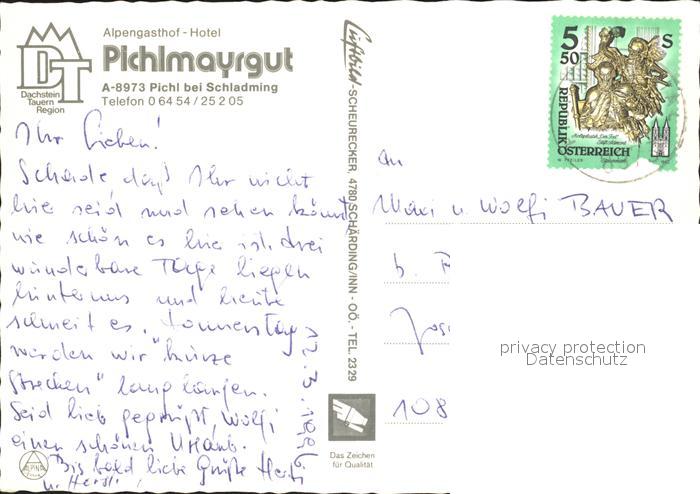 Alpengasthof - Hotel
Pichlmayrgut
A-8973 Pichl bei Schladming
Telefon 0 64 54 / 25 2 05
DT
Dachstein
Tauern
Region
Ihr Lieben!
Schade daß Ihr nicht
hie seid und sehen könnt
wie schön es hie ist. drei
wunderbare Tage liegen
hinter uns und heute
schneit es. Donnerstag
werden wir "kurze
Strecken" langlaufen.
Seid lieb gegrüßt, Wolfi
einen schönen Urlaub.
Bis bald liebe Grüße Herti
u. Horst
12.3.1996
Luftbild-SCHEURECKER, 4780 SCHÄRDING/INN - OÖ. - TEL. 2329
Das Zeichen
für Qualität
5 50 S
REPUBLIK
ÖSTERREICH
An
Maxi u. Wolfi BAUER
b.
108
privacy protection
Datenschutz